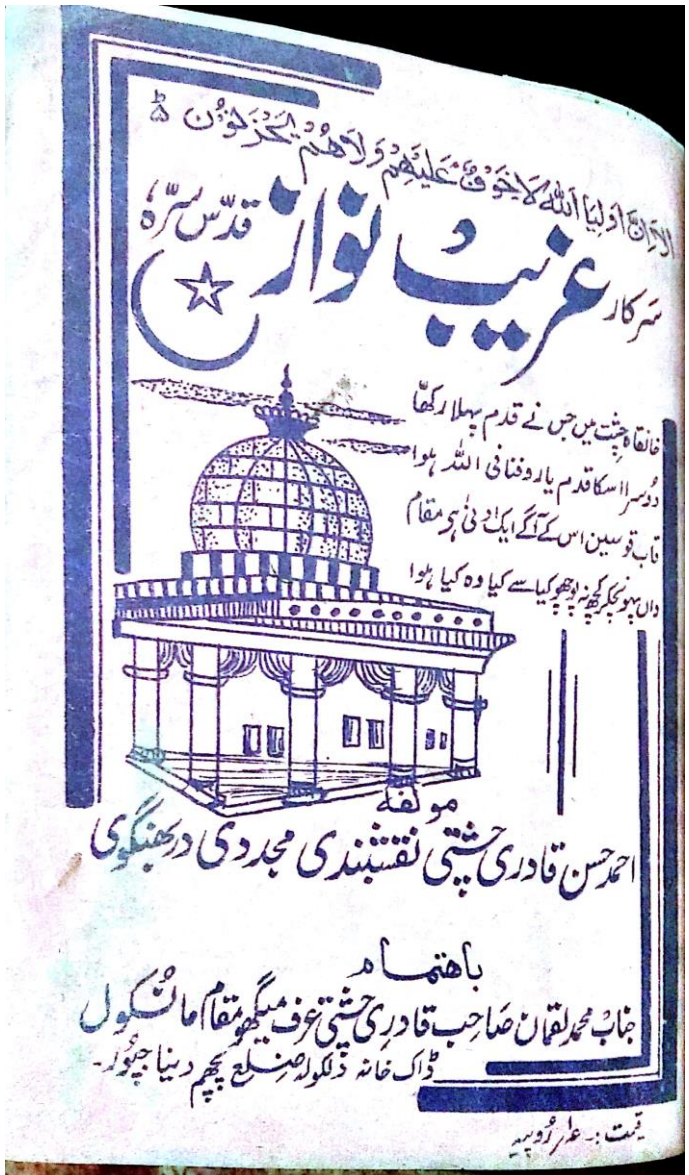 الا ان اولیا الله لا خوف علیهم ولا هم یحزنون ۵
سرکار غریب نواز قدس سرہٗ
خانقاہ چشت میں جس نے قدم پہلا رکھا
دوسرا اسکا قدم یارو فنا فی اللہ ہوا
قاب قوسین اس کے آگے ایک ادنیٰ ہی مقام
واں پہونچکر کچھ نہ پوچھو کیا سے کیا وہ کیا ہوا
مولفہ
احمد حسن قادری چشتی نقشبندی مجددی دربھنگوی
باھتمام
جناب محمد لقمان صاحب قادری چشتی عرف میگھو مقام مانکول
ڈاک خانہ دلکولہ ضلع پچھم دیناجپور۔
قیمت :۔ روپیہ